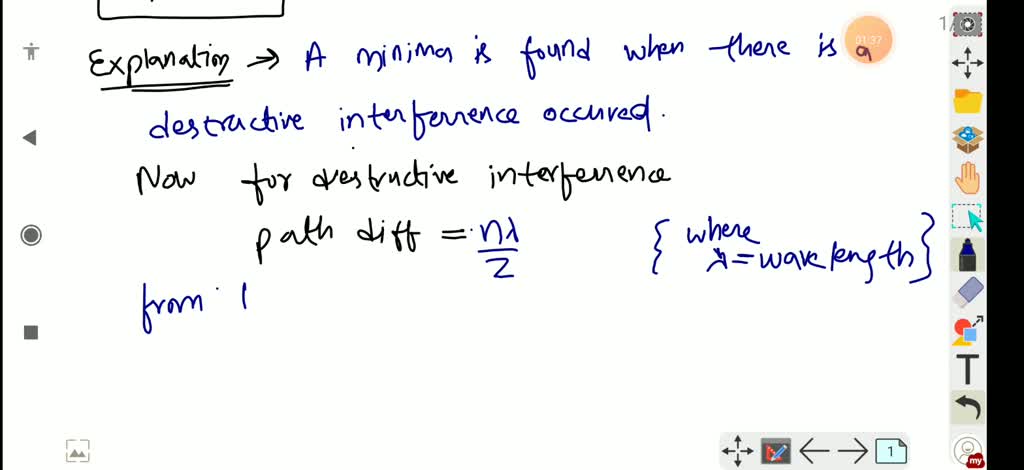 1/
01:37
Explanation → A minima is found when there is a
destructive interferrence occured.
Now for destructive interferrence
path diff = nλ/2 { where λ = wavelength }
from . (
T
1
my